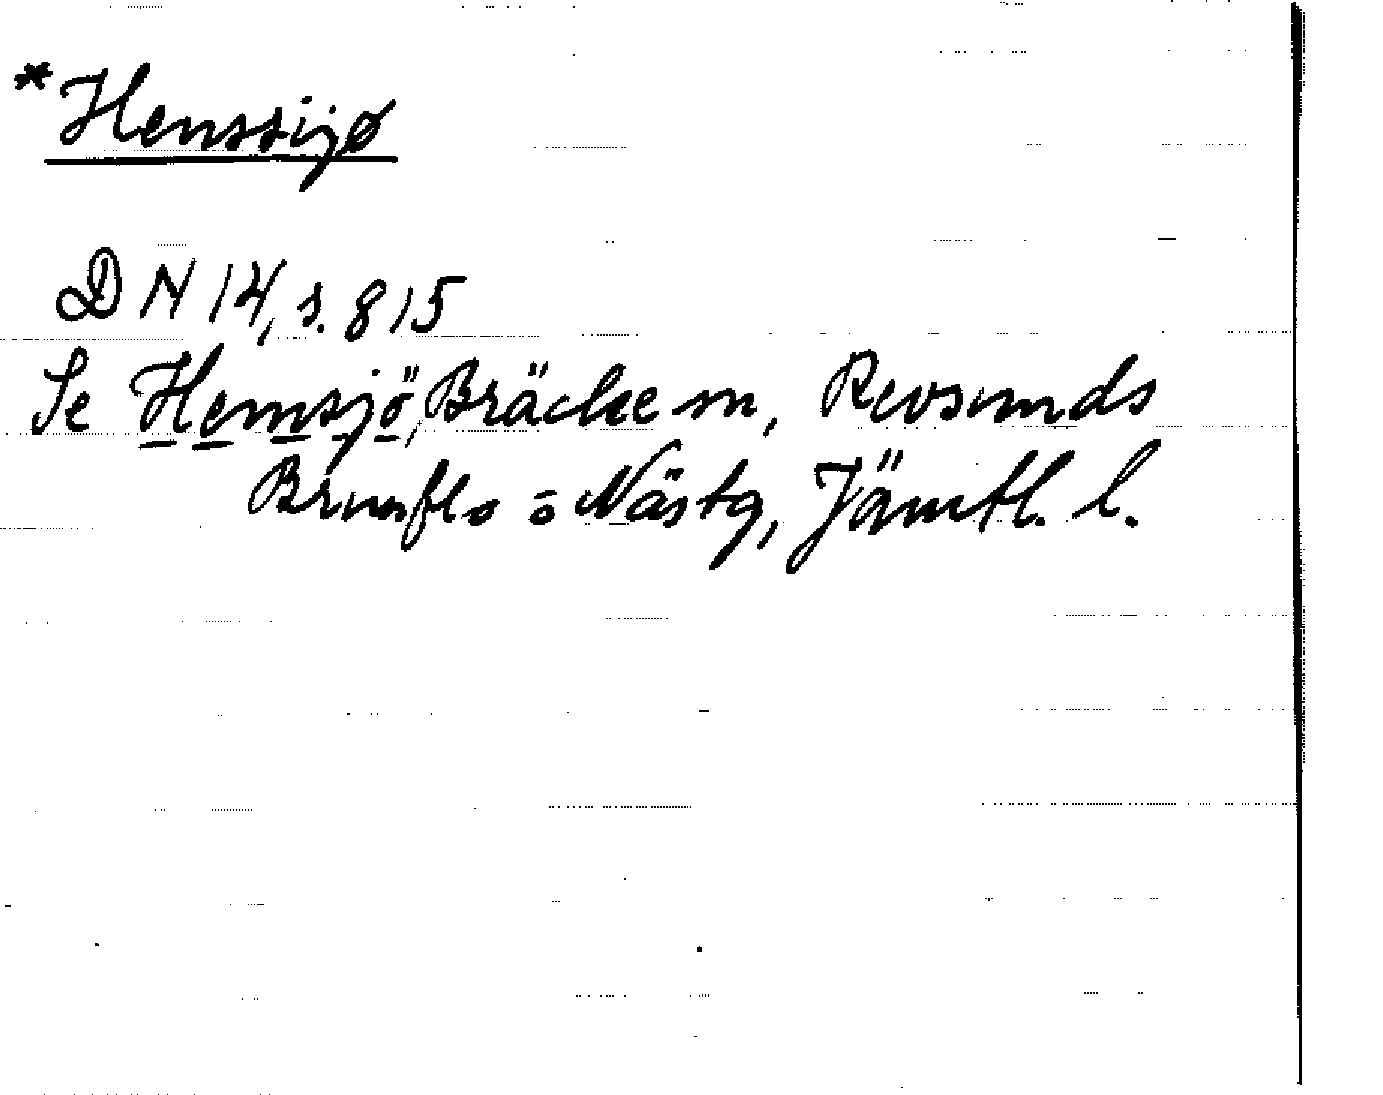 *Henssijø
DN 14, s. 815
Se Hemsjö, Bräcke sn, Revsunds
Brunflo o Näs tg, Jämtl. l.